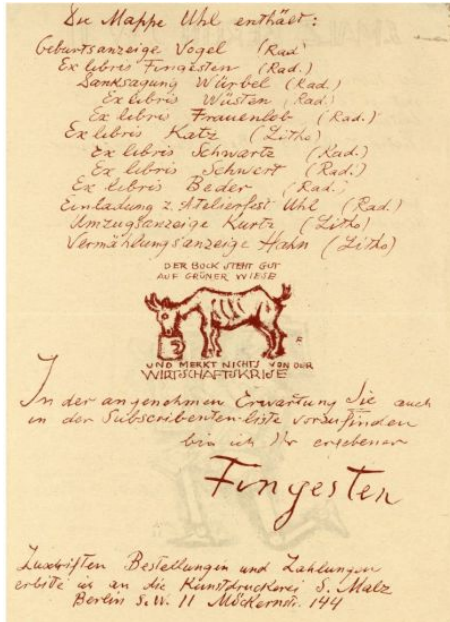 Die Mappe Uhl enthält:
Geburtsanzeige Vogel (Rad.
Ex libris Fingesten (Rad.)
Danksagung Würbel (Rad.)
Ex libris Wüsten (Rad.)
Ex libris Frauenlob (Rad.)
Ex libris Katz (Litho)
Ex libris Schwartz (Rad.)
Ex libris Schwert (Rad.)
Ex libris Beder (Rad.)
Einladung z. Atelierfest Uhl (Rad.)
Umzugsanzeige Kurtz (Litho)
Vermählungsanzeige Hahn (Litho)
DER BOCK STEHT GUT
AUF GRÜNER WIESE
F
UND MERKT NICHTS VON DER
WIRTSCHAFTSKRISE
In der angenehmen Erwartung Sie auch
in der Subscribenten-liste vorzufinden
bin ich Ihr ergebener
Fingesten
Zuschriften Bestellungen und Zahlungen
erbitte ich an die Kunstdruckerei S. Malz
Berlin S.W. 11 Möckernstr. 144